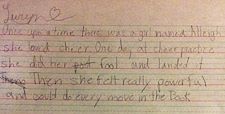 Lauryn
Once upon a time there was a girl named Alleigh
she loved cheer One day at cheer practice
she did her foot and landed it
Then she felt really powerful
and could do every move in the Book